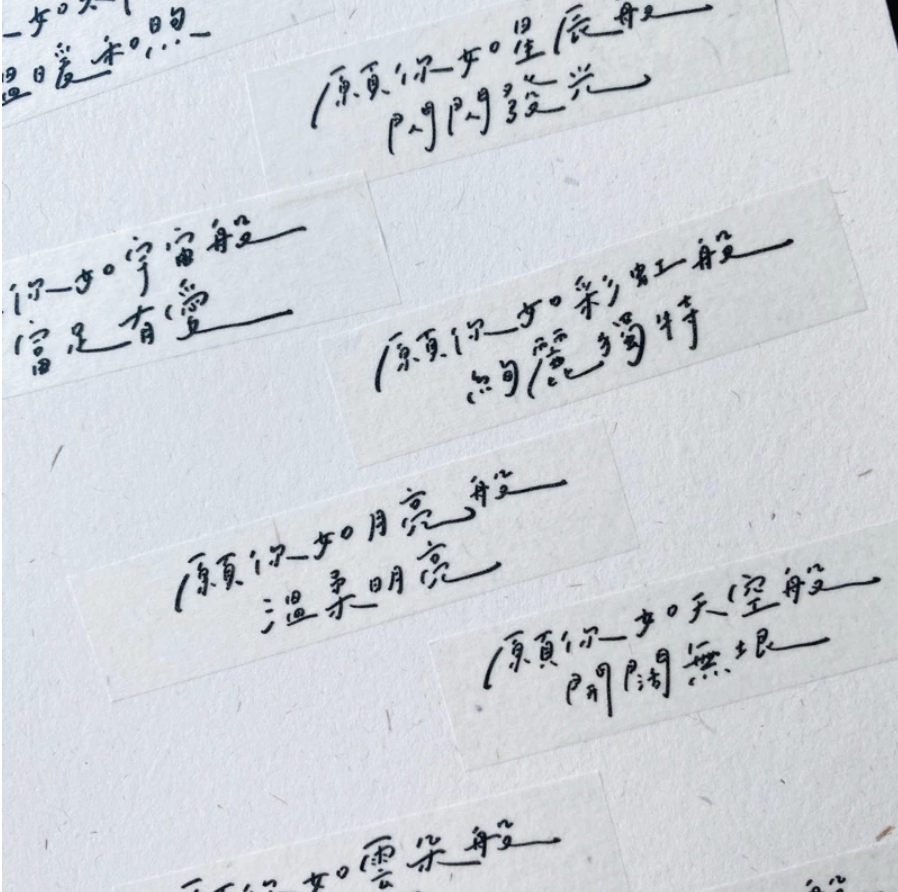 溫暖和煦
願你如星辰般
閃閃發光
你如宇宙般
富足有愛
願你如彩虹般
絢麗獨特
願你如月亮般
溫柔明亮
願你如天空般
開闊無垠
願你如雲朵般
般